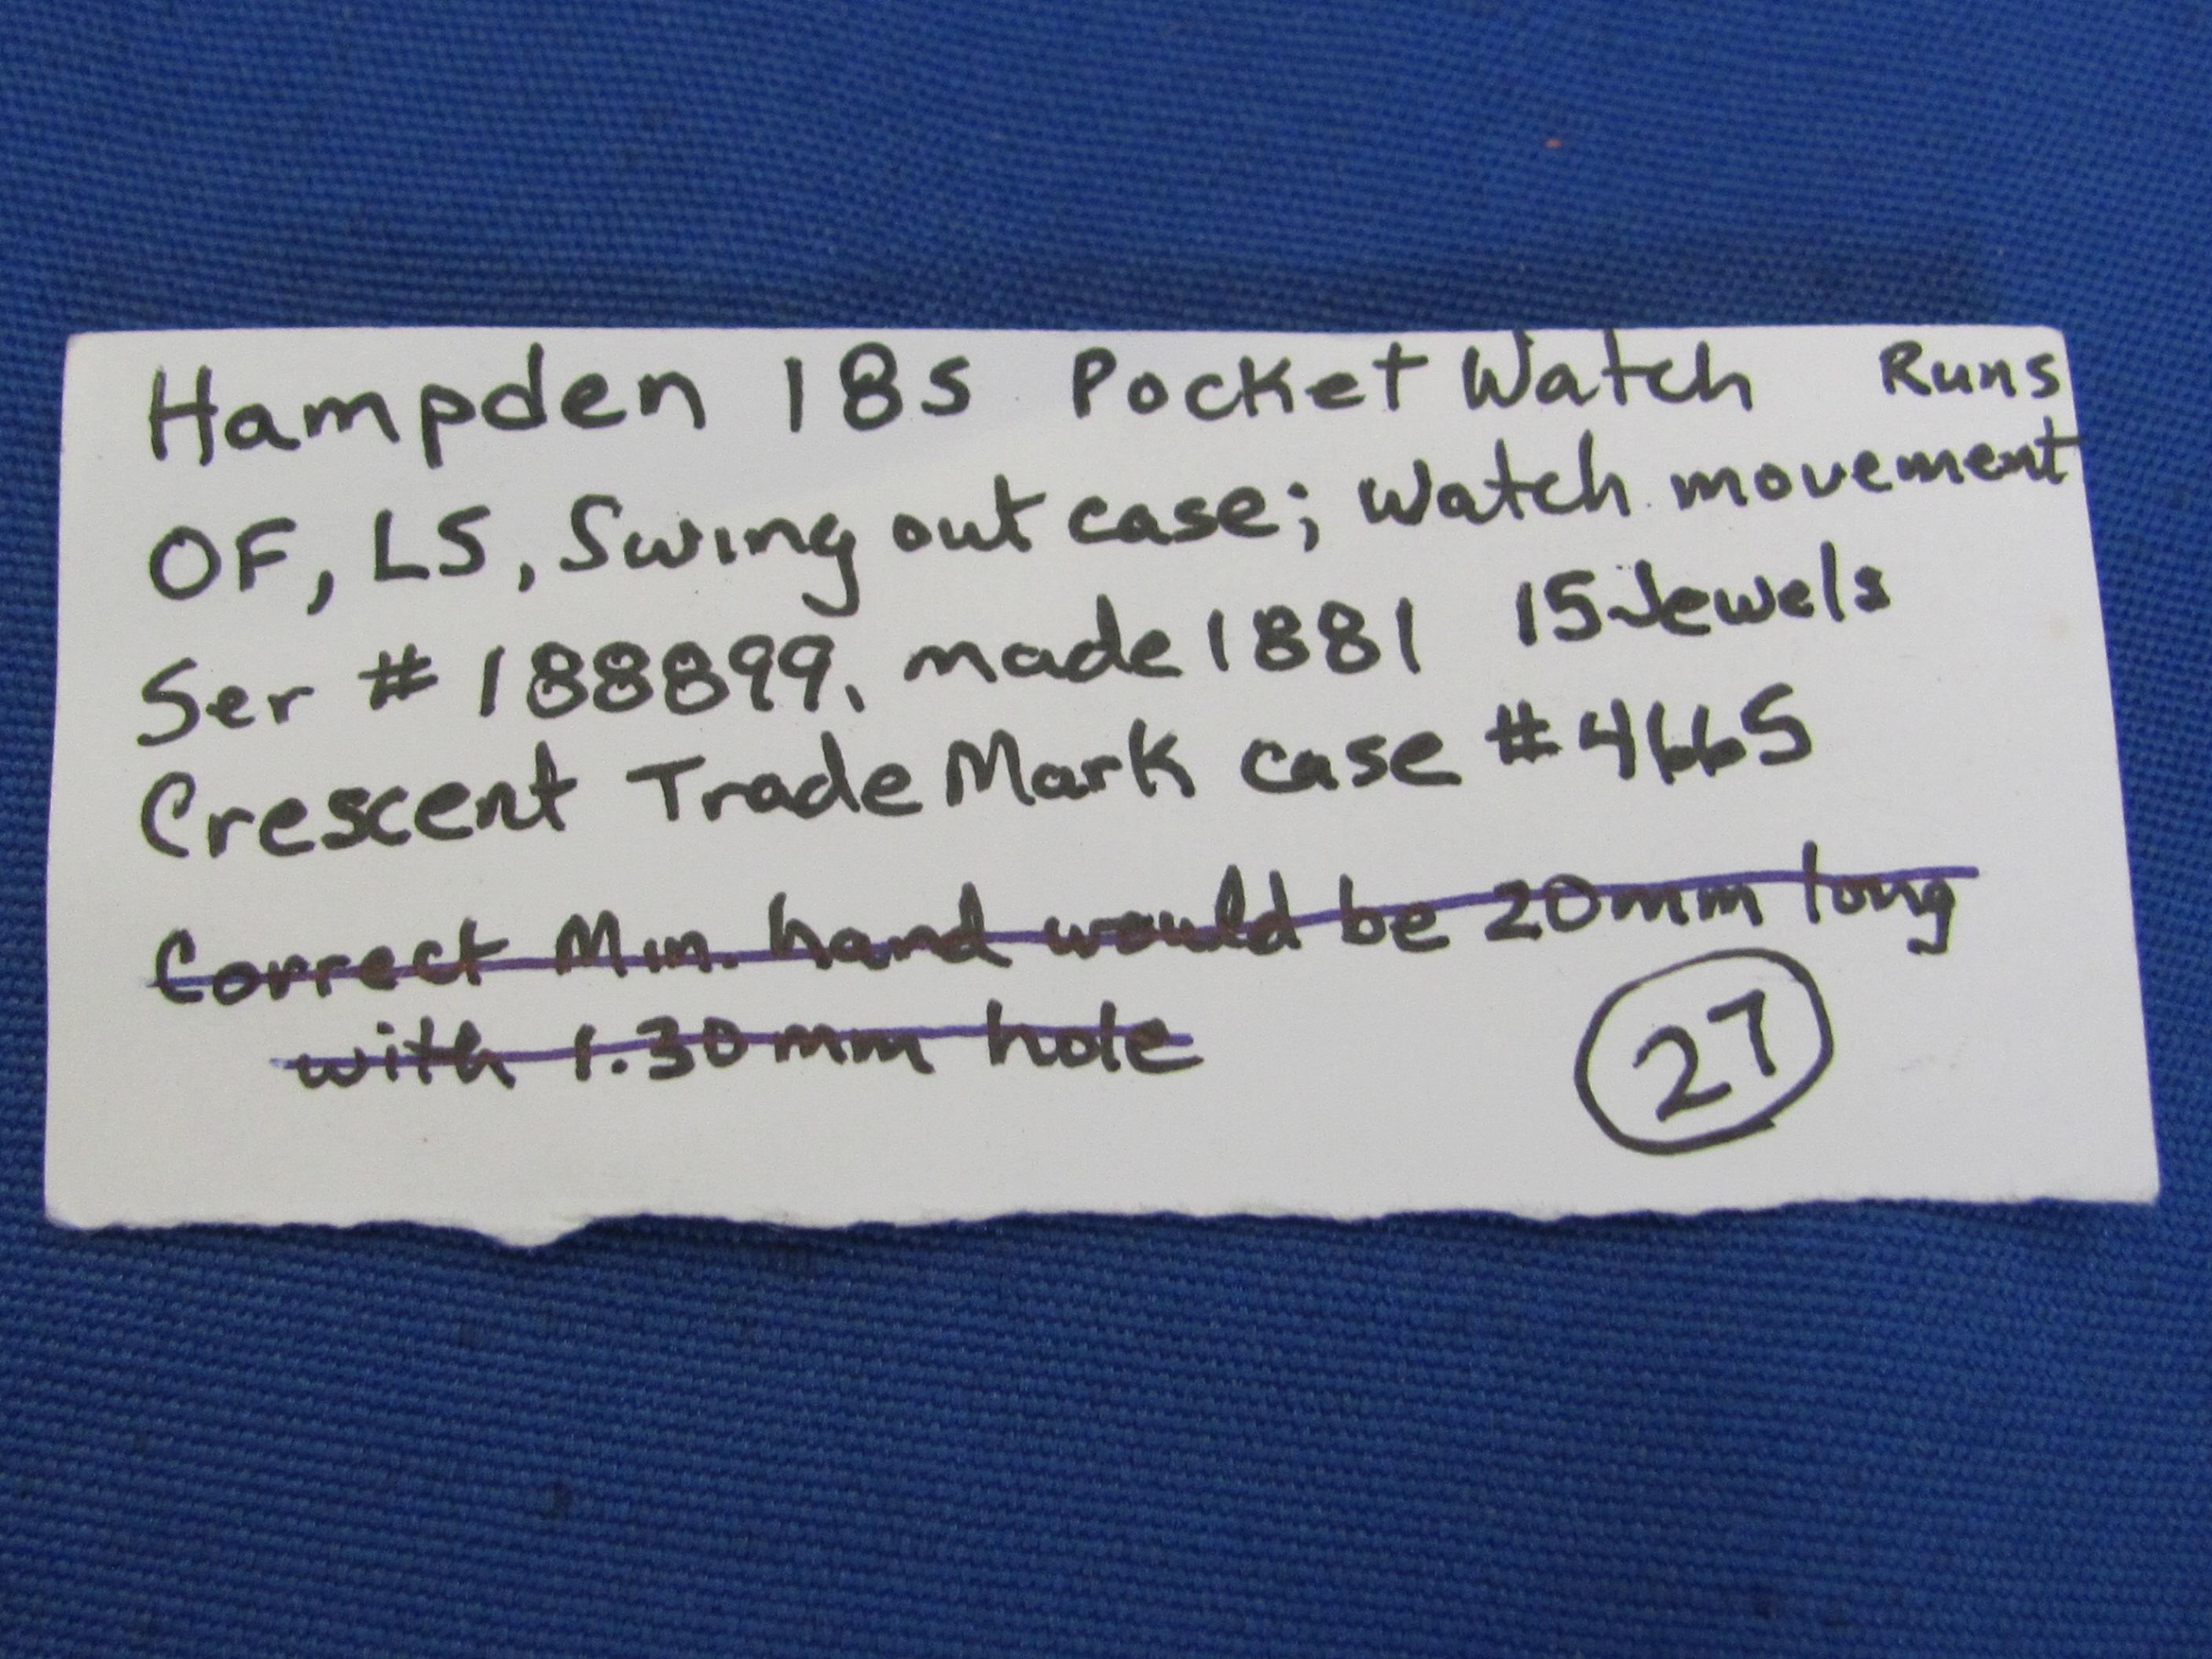 Hampden 18s Pocket Watch Runs
OF, LS, Swing out case; Watch movement
Ser # 188899, made 1881 15 Jewels
Crescent Trade Mark case #4665
Correct Min. hand would be 20mm long
with 1.30mm hole
27